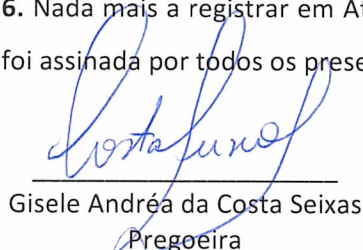 6. Nada mais a registrar em
foi assinada por todos os
Gisele Andréa da Costa Seixas
Pregoeira